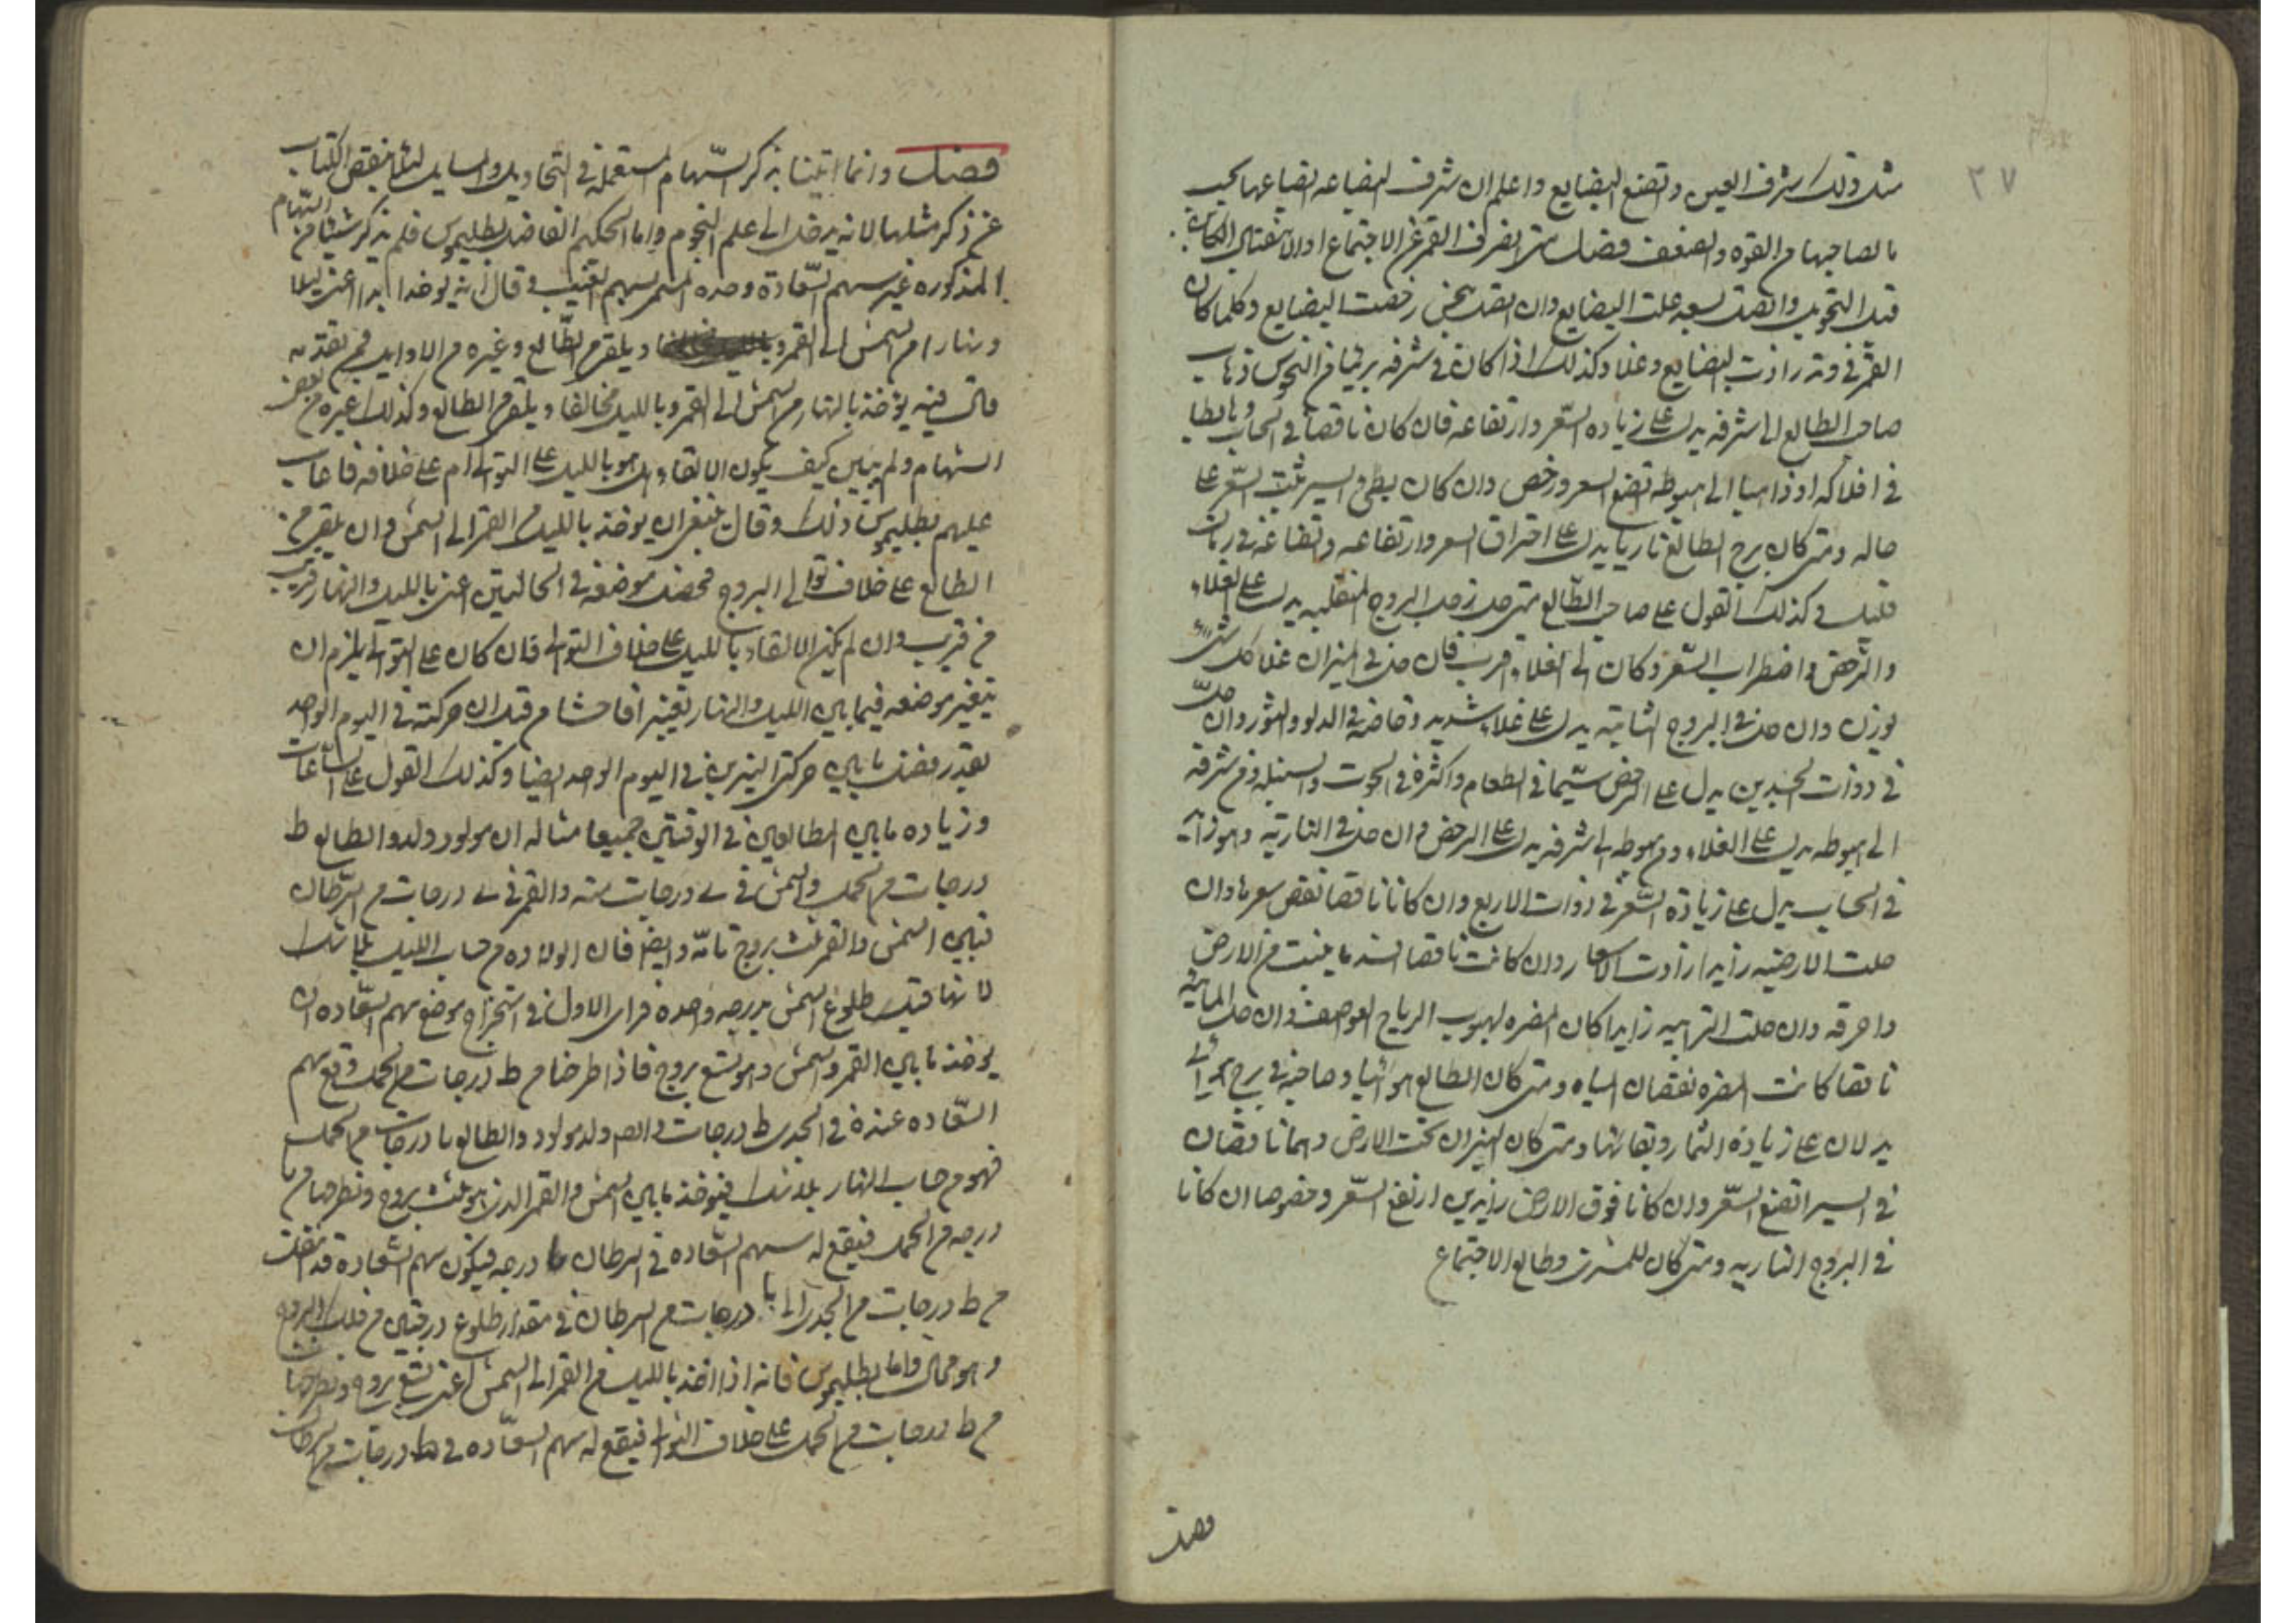 ٢٧
مثل ذلك شرف العين وتضع البضايع واعلم ان شرف البضاعه اتضاعها بحسب
ما لصاحبها من القوه والضعف فصل متى انصرف القمر عن الاجتماع او الاستقبال الكاين
قبل التحويل واتصل بسعد غلت البضايع وان اتصل بنحس رخصت البضايع وكلما كان
القمر في وتد زادت البضايع وغلا وكذلك اذا كان في شرفه بريئا من النحوس ذهاب
صاحب الطالع الى شرفه يدل على زياده السعر وارتفاعه فان كان ناقصا في الحساب وهابطا
في افلاكه او ذاهبا الى هبوطه تضع السعر ورخص وان كان بطئ السير يثبت السعر على
حاله ومتى كان برج الطالع ناريا يدل على احتراق السعر وارتفاعه واتضاعه في زمان
قليل وكذلك القول على صاحب الطالع متى حل زحل البروج المنقلبه يدل على الغلاء
والرخص واضطراب السعر وكان الى الغلاء اقرب فان حل في الميزان غلا كل شئ
يوزن وان حل في البروج الثابته يدل على غلاء شديد وخاصه في الدلو والثور وان حل
في ذوات الجسدين يدل على الرخص سيما في الطعام واكثره في الحوت والسنبله ومن شرفه
الى هبوطه يدل على الغلاء ومن هبوطه الى شرفه يدل على الرخص وان حل في الناريه وهو زايد
في الحساب يدل على زيادة السعر في ذوات الاربع وان كانا ناقصا نقص سعرها وان
حلت الارضيه زايدا زادت الاسعار وان كانت ناقصا افسد ما ينبت من الارض
واحرقه وان حلت الترابيه زايدا كان المضره لهبوب الرياح العواصف وان حل المائيه
ناقصا كانت المضره نقصان المياه ومتى كان الطالع هوائيا وصاحبه في برج هوائي
يدلان على زيادة الثمار وبقائها ومتى كان النيران تحت الارض وهما ناقصان
في السير اتضع السعر وان كانا فوق الارض زايدين ارتفع السعر وخصوصا ان كانا
في البروج الناريه ومتى كان للمشترى وطالع الاجتماع
فصل
فصل وانما اتينا بذكر السهام المستعمله في التحاويل والمسايل لئلا ينقص الكتاب
عن ذكر مثلها لانه يدخل الى علم النجوم واما الحكيم الفاضل بطليموس فلم يذكر شيئا من السهام
المذكوره غير سهم السعادة وحده المسمى بسهم الغيب وقال انه يوخذ ابدا اعنى ليلا
ونهارا من الشمس الى القمر ويلقى من الطالع وغيره من الاوايل فمن تقدمه
قال فيه يؤخذ بالنهار من الشمس الى القمر وبالليل مخالفا ويلقى من الطالع وكذلك غيره من بعض
السهام ولم يبين كيف يكون الالقاء بل هو بالليل على التوالى ام على خلافه فاعاب
عليهم بطليموس ذلك وقال ينبغى ان يوخذ بالليل من القمر الى الشمس وان يلقى من
الطالع على خلاف توالى البروج فحصل موضعه في الحالتين اعنى بالليل والنهار قريب
من قريب وان لم يكن الالقاء بالليل على خلاف التوالى فان كان على التوالى يلزم ان
يتغير موضعه فيما بين الليل والنهار تغييرا فاحشا من قبل ان حركته في اليوم الواحد
بقدر فضل ما بين حركتى النيرين في اليوم الواحد ايضا وكذلك القول على الساعات
وزياده ما بين الطالعين في الوقتين جميعا مثاله ان مولود ولد والطالع ط
درجات من الحمل والشمس في ى درجات منه والقمر في ى درجات من السرطان
فبين الشمس والقمر ثلث بروج تامه وايضا فان الولاده من حساب الليل بلا شك
لانها قبل طلوع الشمس بدرجه واحده فراى الاول في استخراج موضع سهم السعاده ان
يوخذ ما بين القمر والشمس وهو تسع بروج فاذا طرحنا من ط درجات من الحمل وقع سهم
السعاده عنده في الجدى ط درجات ولد مولود والطالع يا درجات من الحمل
فهو من حساب النهار بلا شك فيوخذ ما بين الشمس والقمر الذى هو ثلث بروج ونطرحها من يا
درجه من الحمل فيقع له سهم السعاده في السرطان يا درجه فيكون سهم السعادة قد انتقل
من ط درجات من الجدى الى يا درجات من السرطان في مقدار طلوع درجتين من فلك البروج
وهو محال واما بطليموس فانه اذا اخذ بالليل من القمر الى الشمس اعنى تسع بروج ونطرحها
من ط درجات من الحمل على خلاف التوالى فيقع له سهم السعاده في ط درجات من السرطان